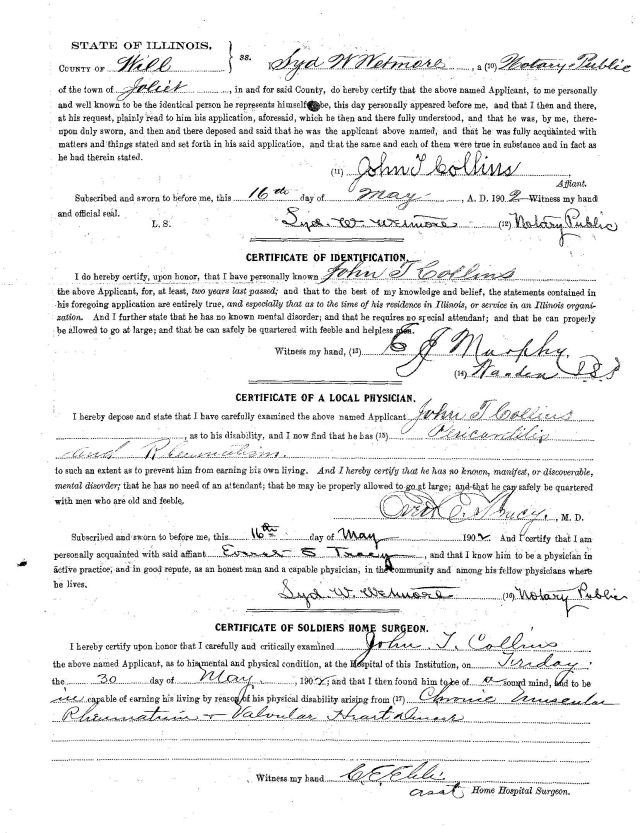 STATE OF ILLINOIS,
COUNTY OF Will } ss. I, Syd W Wetmore, a (10) Notary Public
of the town of Joliet, in and for said County, do hereby certify that the above named Applicant, to me personally
and well known to be the identical person he represents himself be, this day personally appeared before me, and that I then and there,
at his request, plainly read to him his application, aforesaid, which he then and there fully understood, and that he was, by me, there-
upon duly sworn, and then and there deposed and said that he was the applicant above named, and that he was fully acquainted with
matters and things stated and set forth in his said application, and that the same and each of them were true in substance and in fact as
he had therein stated.
(11) John T Collins
Affiant.
Subscribed and sworn to before me, this 16th day of May, A. D. 1902 Witness my hand
and official seal.
L. S. Syd. W. Wetmore (12) Notary Public
CERTIFICATE OF IDENTIFICATION.
I do hereby certify, upon honor, that I have personally known John T Collins
the above Applicant, for, at least, two years last passed; and that to the best of my knowledge and belief, the statements contained in
his foregoing application are entirely true, and especially that as to the time of his residence in Illinois, or service in an Illinois organi-
zation. And I further state that he has no known mental disorder; and that he requires no special attendant; and that he can properly
be allowed to go at large; and that he can safely be quartered with feeble and helpless men.
Witness my hand, (13) E J Murphy.
(14) Warden
CERTIFICATE OF A LOCAL PHYSICIAN.
I hereby depose and state that I have carefully examined the above named Applicant John T Collins
, as to his disability, and I now find that he has (15) Pericarditis
and Rheumatism.
to such an extent as to prevent him from earning his own living. And I hereby certify that he has no known, manifest, or discoverable,
mental disorder; that he has no need of an attendant; that he may be properly allowed to go at large; and that he can safely be quartered
with men who are old and feeble.
, M. D.
Subscribed and sworn to before me, this 16th day of May 1902 And I certify that I am
personally acquainted with said affiant S Tracy, and that I know him to be a physician in
active practice, and in good repute, as an honest man and a capable physician, in the community and among his fellow physicians where
he lives.
Syd W. Wetmore (16) Notary Public
CERTIFICATE OF SOLDIERS HOME SURGEON.
I hereby certify upon honor that I carefully and critically examined John T. Collins
the above named Applicant, as to his mental and physical condition, at the Hospital of this Institution, on Friday.
the 30 day of May, 1902; and that I then found him to be of a sound mind, and to be
in capable of earning his living by reason of his physical disability arising from (17) Chronic Muscular
Rheumatism + Valvular Heart Disease
Witness my hand
asst Home Hospital Surgeon.